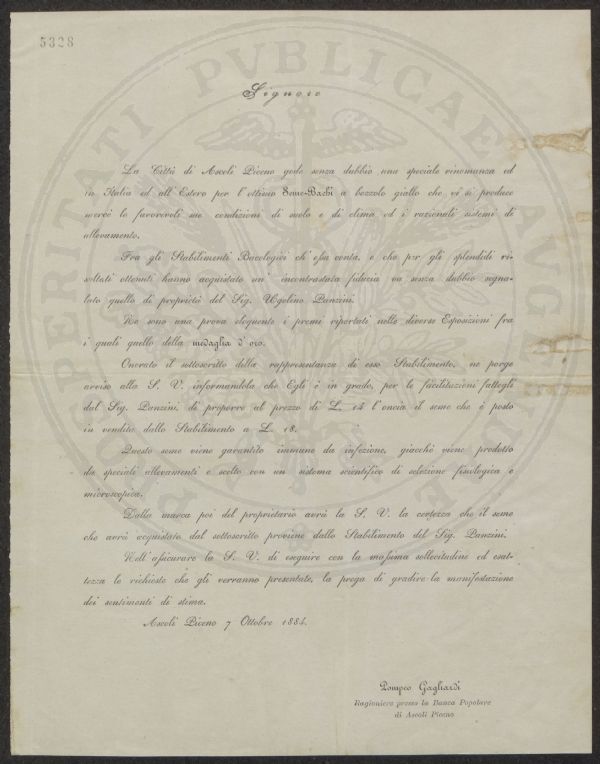 5328
Signore
La Città di Ascoli Piceno gode senza dubbio una speciale rinomanza ed
in Italia ed all'Estero per l'ottimo Seme-Bachi a bozzolo giallo che vi si produce
mercè le favorevoli sue condizioni di suolo e di clima ed i razionali sistemi di
allevamento.
Fra gli Stabilimenti Bacologici ch'essa conta, e che per gli splendidi ri-
sultati ottenuti hanno acquistato un' incontrastata fiducia va senza dubbio segna-
lato quello di proprietà del Sig. Ugolino Panzini.
Ne sono una prova eloquente i premi riportati nelle diverse Esposizioni fra
i quali quello della medaglia d'oro.
Onorato il sottoscritto della rappresentanza di esso Stabilimento, ne porge
avviso alla S. V. informandola che Egli è in grado, per le facilitazioni fattegli
dal Sig. Panzini, di proporre al prezzo di L. 14 l'oncia il seme che è posto
in vendita dallo Stabilimento a L. 18.
Questo seme viene garantito immune da infezione, giacchè viene prodotto
da speciali allevamenti e scelto con un sistema scientifico di selezione fisiologica e
microscopica.
Dalla marca poi del proprietario avrà la S. V. la certezza che il seme
che avrà acquistato dal sottoscritto proviene dallo Stabilimento del Sig. Panzini.
Nell'assicurare la S. V. di eseguire con la massima sollecitudine ed esat-
tezza le richieste che gli verranno presentate, la prega di gradire la manifestazione
dei sentimenti di stima.
Ascoli Piceno 7 Ottobre 1884.
Pompeo Gagliardi
Ragioniere presso la Banca Popolare
di Ascoli Piceno
PERITATI PVBLICAE AVGENDAE